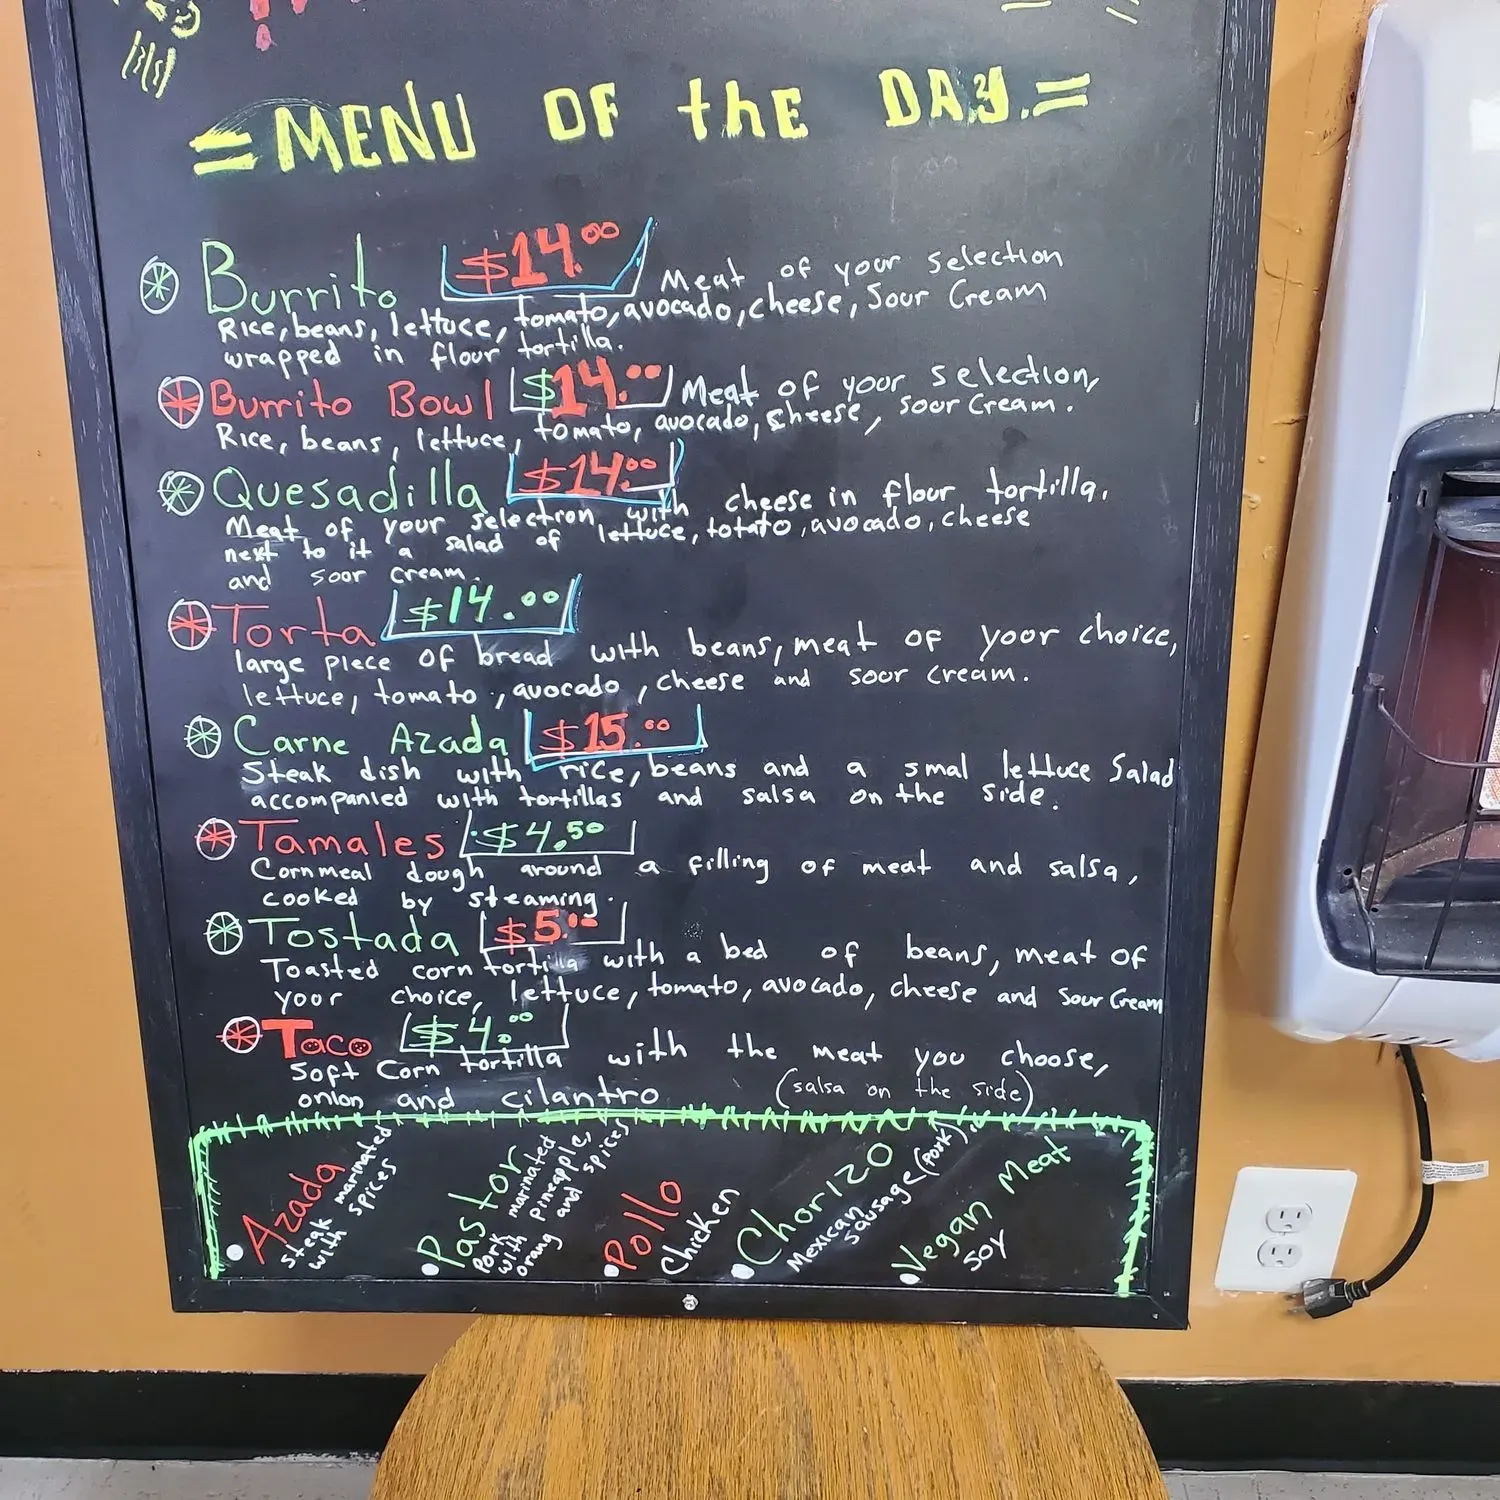 =MENU OF the DAY.=
Burrito $14.00 Meat of your selection
Rice, beans, lettuce, tomato, avocado, cheese, Sour Cream
wrapped in flour tortilla.
Burrito Bowl $14.00 Meat of your selection,
Rice, beans, lettuce, tomato, avocado, cheese, sour Cream.
Quesadilla $14.00
Meat of your selection with cheese in flour tortilla.
next to it a salad of lettuce, totato, avocado, cheese
and soor cream.
Torta $14.00
large piece of bread with beans, meat of your choice,
lettuce, tomato, avocado, cheese and soor cream.
Carne Azada $15.00
Steak dish with rice, beans and a smal lettuce Salad
accompanied with tortillas and salsa on the side.
Tamales $4.50
Cornmeal dough around a filling of meat and salsa,
cooked by steaming.
Tostada $5.00
Toasted corn tortilla with a bed of beans, meat of
yoor choice, lettuce, tomato, avocado, cheese and Sour Cream
Taco $4.00
Soft Corn tortilla with the meat you choose,
onion and cilantro (salsa on the side)
Azada
steak marinated
with spices
Pastor
Pork marinated
with pineapple,
orang and spices
Pollo
Chicken
Chorizo
Mexican
sausage (pork)
Vegan Meat
Soy